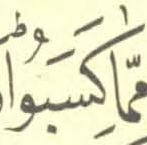 مِّمَّا كَسَبُوا